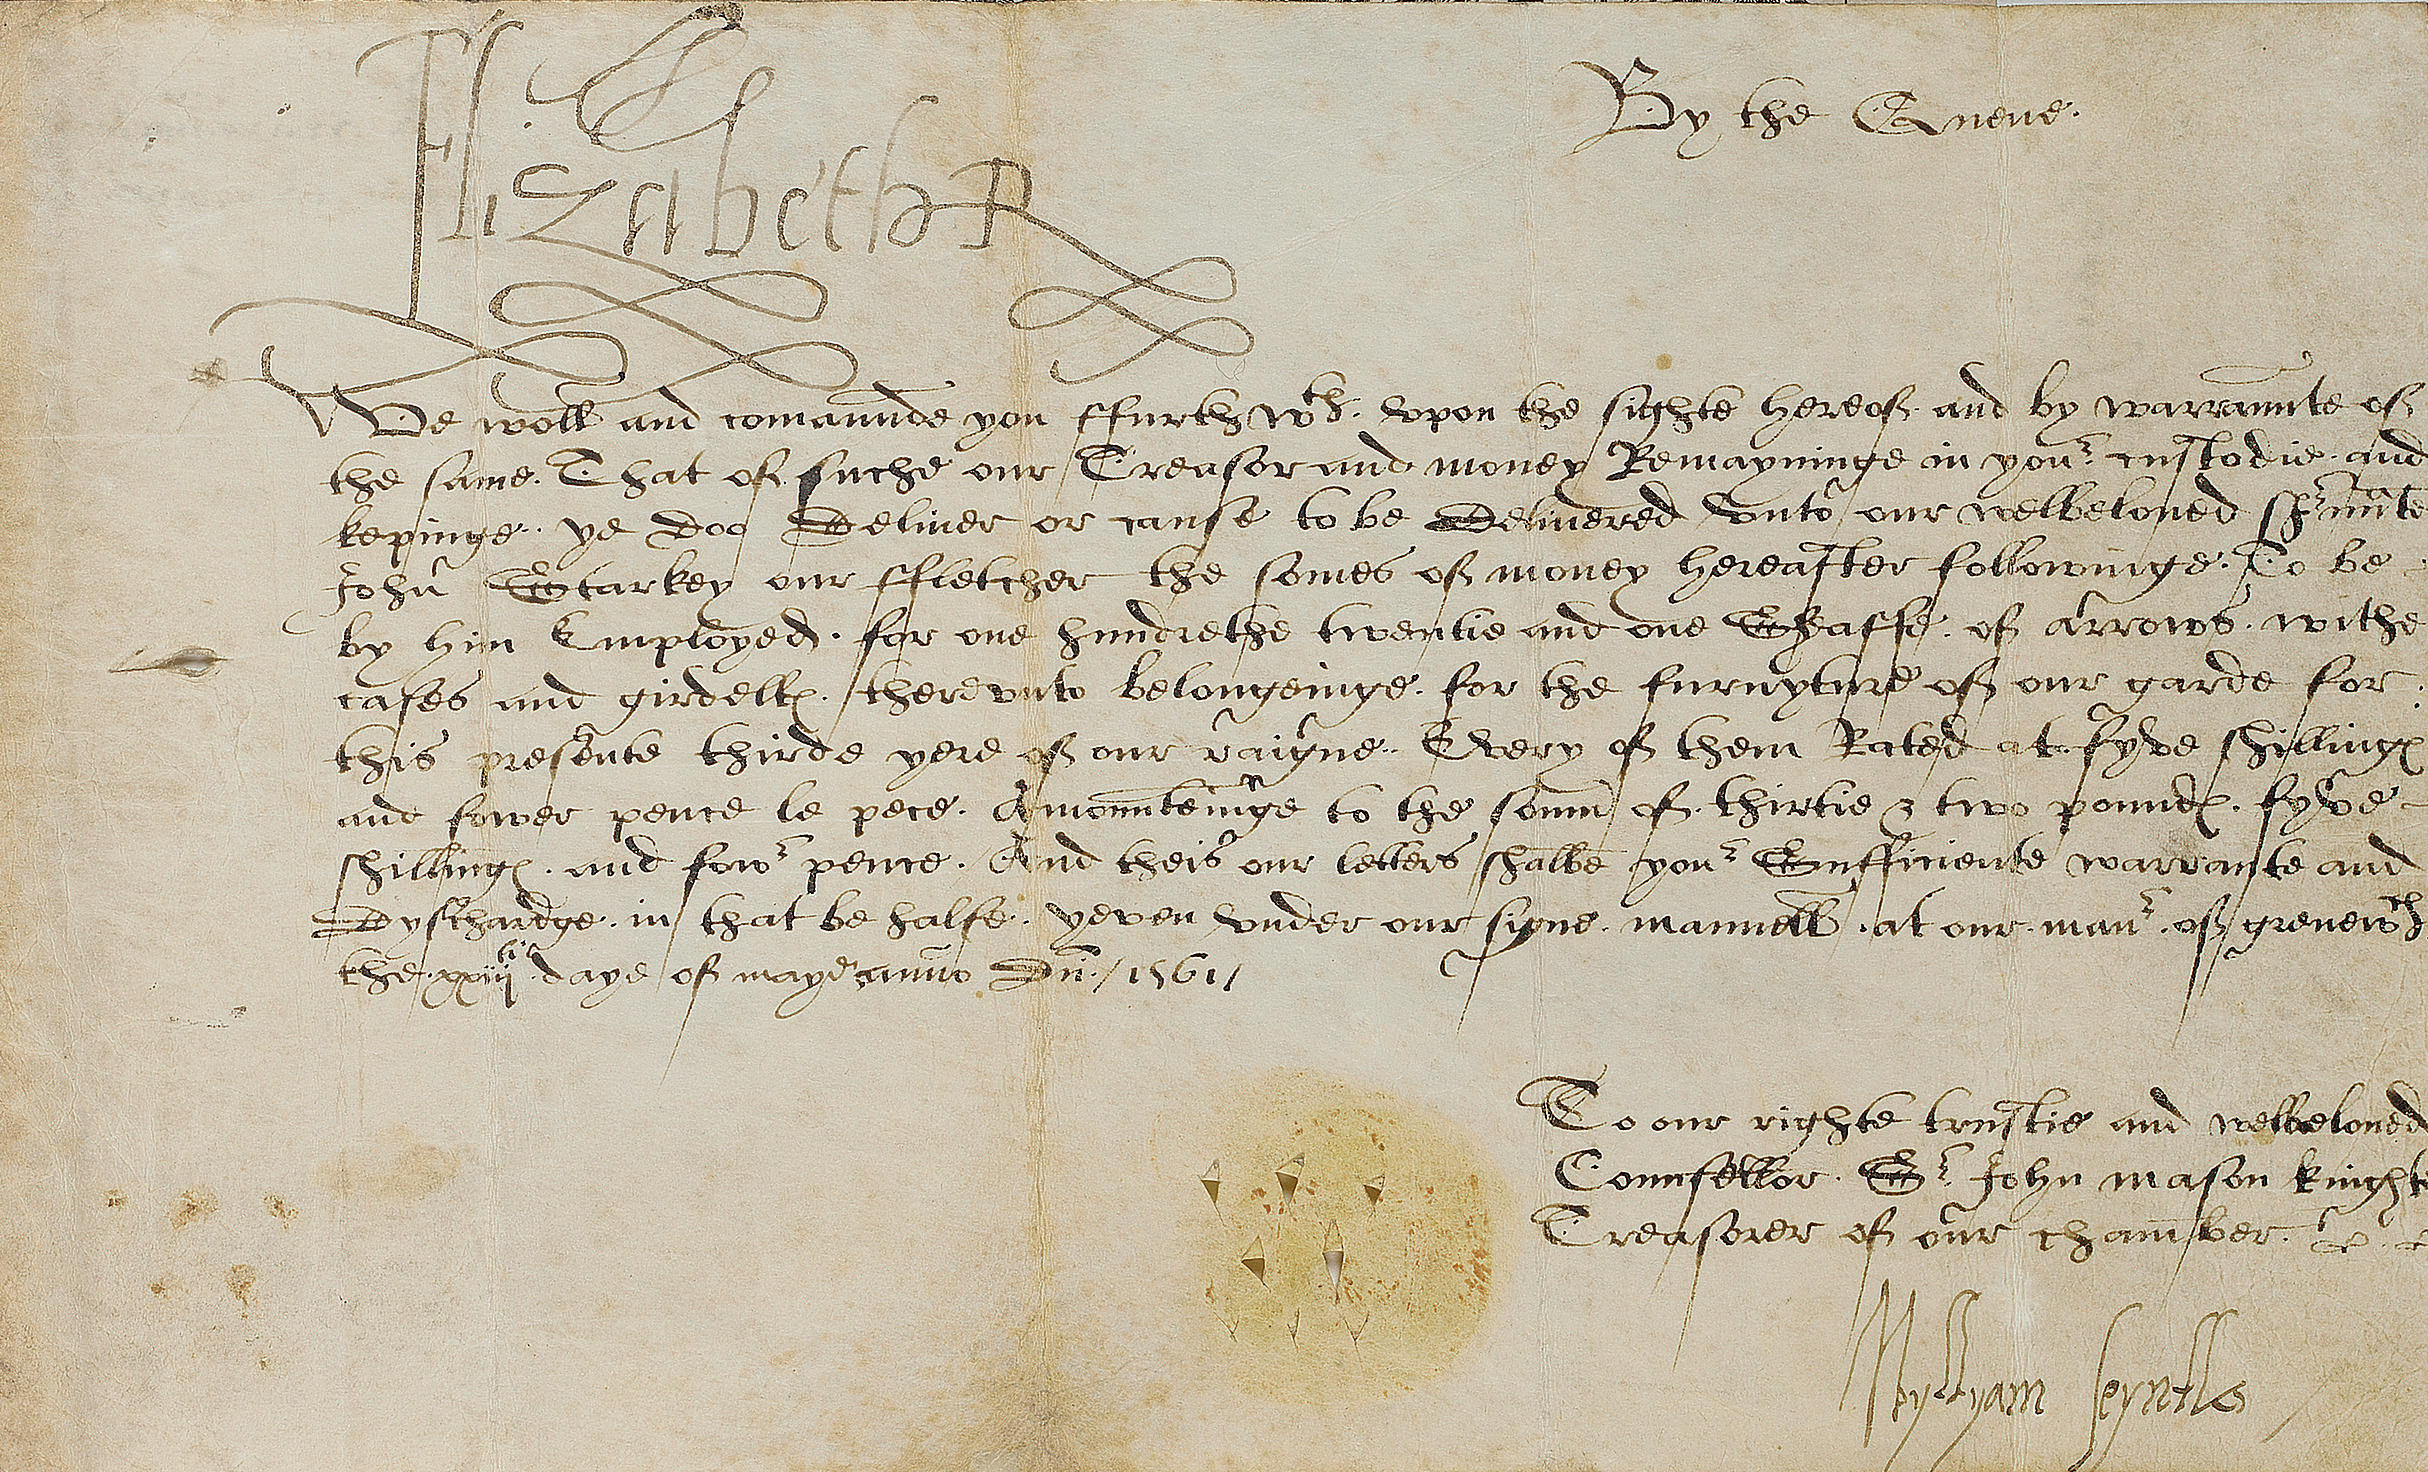 Elizabeth R
By the Quene.
We woll and comaunde you ffurth wth. vpon the sighte hereof. and by warraunte of
the same. That of suche our Treasor and money Remayninge in yor. custodie. and
kepinge. ye doo deliuer or cause to be deliuered vnto our welbeloued sruunte
John Starkey our ffletcher the somes of money hereafter followinge. To be
by him Employed. for one hundrethe twentie and one Sheaffe. of arrows. withe
cases and girdells. therevnto belongeinge. for the furnyture of our garde for
this presente thirde yere of our raigne. Every of them Rated at fyve shillings
and fower pence le pece. Amounteinge to the somm of. thirtie & two pounds. fyve
shillings. and fowr pence. And theis our letters shalbe your Sufficiente warrante and
dyschardge. in that be halfe. yeven vnder our signe. manuell. at our manr. of grenewch
the xxiiijti daye of maye anno Dni. / 1561 /
To our righte trustie and welbeloued
Counsellor. Sr. John mason knighte
Treasorer of our chamber.
Wyllyam